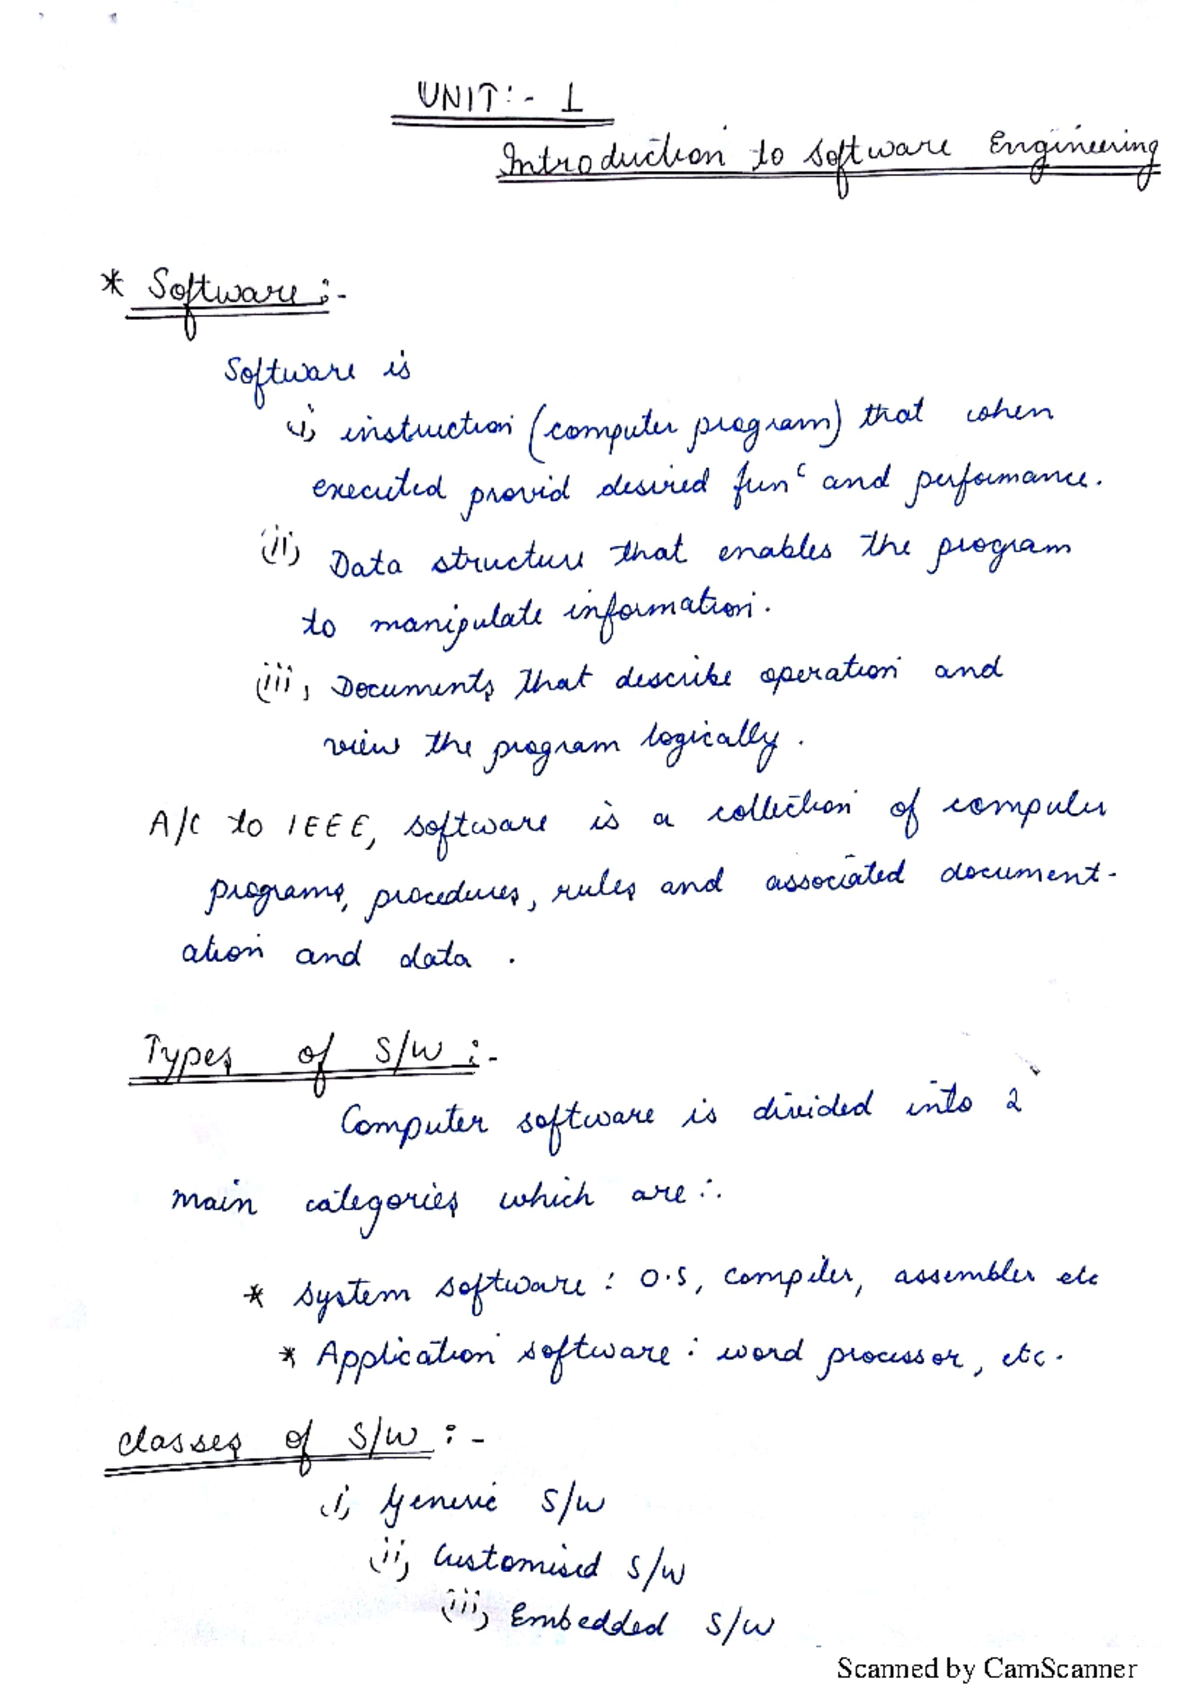 UNIT:- 1
Introduction to Software Engineering
* Software:-
Software is
(i) instruction (computer program) that when
executed provid desired fun^c and performance.
(ii) Data structure that enables the program
to manipulate information.
(iii) Documents that describe operation and
view the program logically.
A/C to IEEE, software is a collection of computer
programs, procedures, rules and associated document-
ation and data.
Types of S/W:-
Computer software is divided into 2
main categories which are:.
* System software: O.S, compiler, assembler etc
* Application software: word processor, etc.
Classes of S/W:-
(i) Generic S/W
(ii) Customised S/W
(iii) Embedded S/W
Scanned by CamScanner